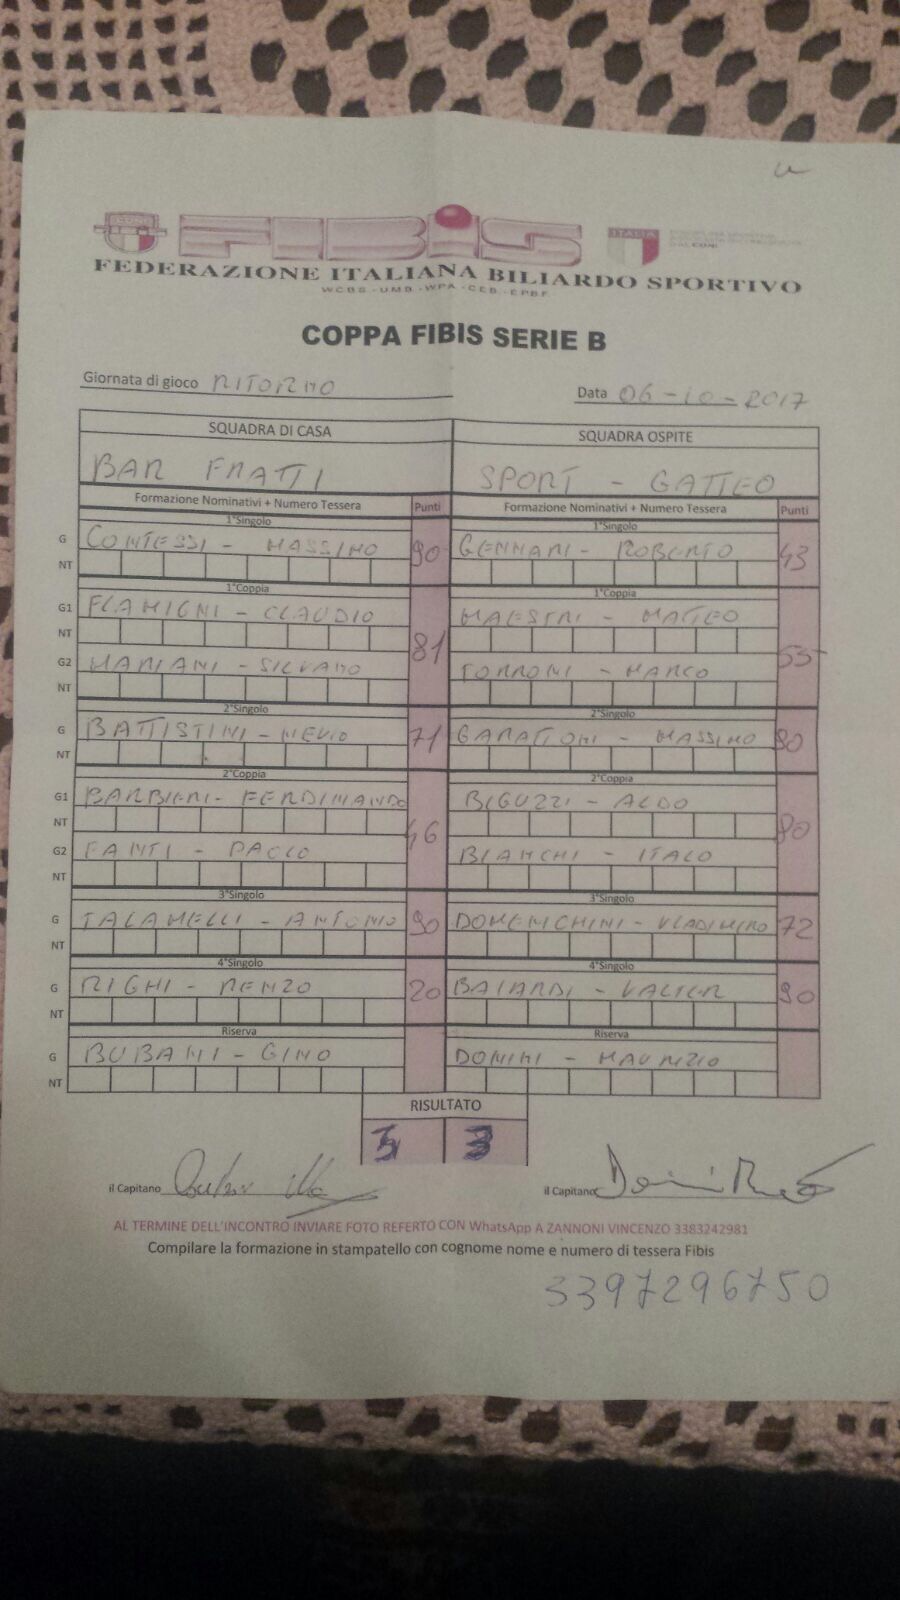 FIBIS
ITALIA
FEDERAZIONE ITALIANA BILIARDO SPORTIVO
WCBS - UMB - WPA - CEB - EPBF
COPPA FIBIS SERIE B
Giornata di gioco RITORNO
Data 06-10-2017
SQUADRA DI CASA SQUADRA OSPITE
BAR FRATTI SPORT - GATTEO
Formazione Nominativi + Numero Tessera Punti Formazione Nominativi + Numero Tessera Punti
1°Singolo 1°Singolo
G CONTESSI - MASSIMO 90 GENNARI - ROBERTO 43
NT
1°Coppia 1°Coppia
G1 FLAMIGNI - CLAUDIO MAESTRI - MATTEO
NT 81 55
G2 MARIANI - SILVANO TORRONI - MARCO
NT
2°Singolo 2°Singolo
G BATTISTINI - NEVIO 71 GARATTONI - MASSIMO 90
NT
2°Coppia 2°Coppia
G1 BARBIERI - FERDINANDO BIGUZZI - ALDO
NT 46 80
G2 FANTI - PAOLO BIANCHI - ITALO
NT
3°Singolo 3°Singolo
G TALAMELLI - ANTONIO 90 DOMENICHINI - VLADIMIRO 72
NT
4°Singolo 4°Singolo
G RIGHI - RENZO 20 BAIARDI - VALTER 90
NT
Riserva Riserva
G BUBANI - GINO DONINI - MAURIZIO
NT
RISULTATO
3 3
il Capitano il Capitano
AL TERMINE DELL'INCONTRO INVIARE FOTO REFERTO CON WhatsApp A ZANNONI VINCENZO 3383242981
Compilare la formazione in stampatello con cognome nome e numero di tessera Fibis
3397296750